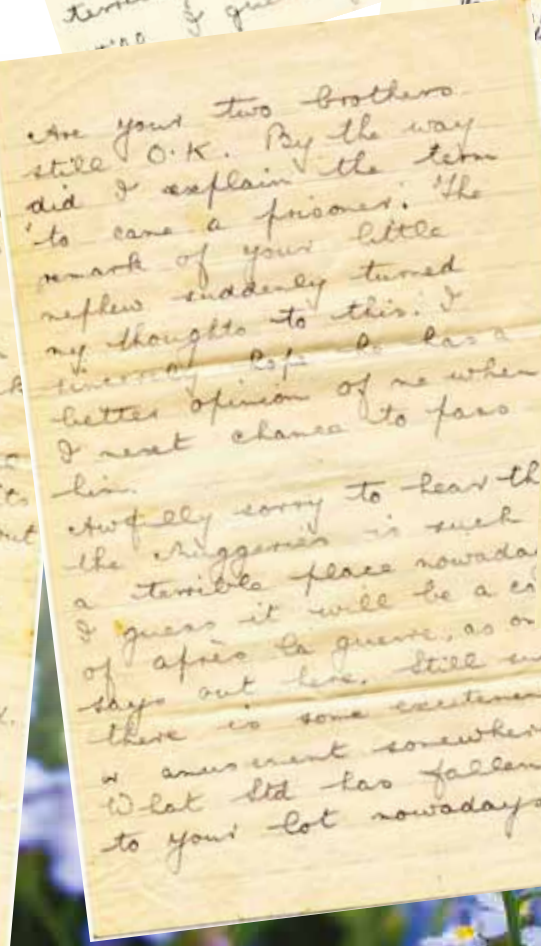 Are your two brothers
still O.K. By the way
did I explain the term
'to came a prisoner.' The
remark of your little
nephew suddenly turned
my thoughts to this. I
sincerely hope he has a
better opinion of me when
I next chance to pass
him.
Awfully sorry to hear th
the is such
a terrible place nowada
I guess it will be a c
of après la guerre, as on
says out here. Still su
there is some excitemen
or amusement somewher
What Std has fallen
to your lot nowadays